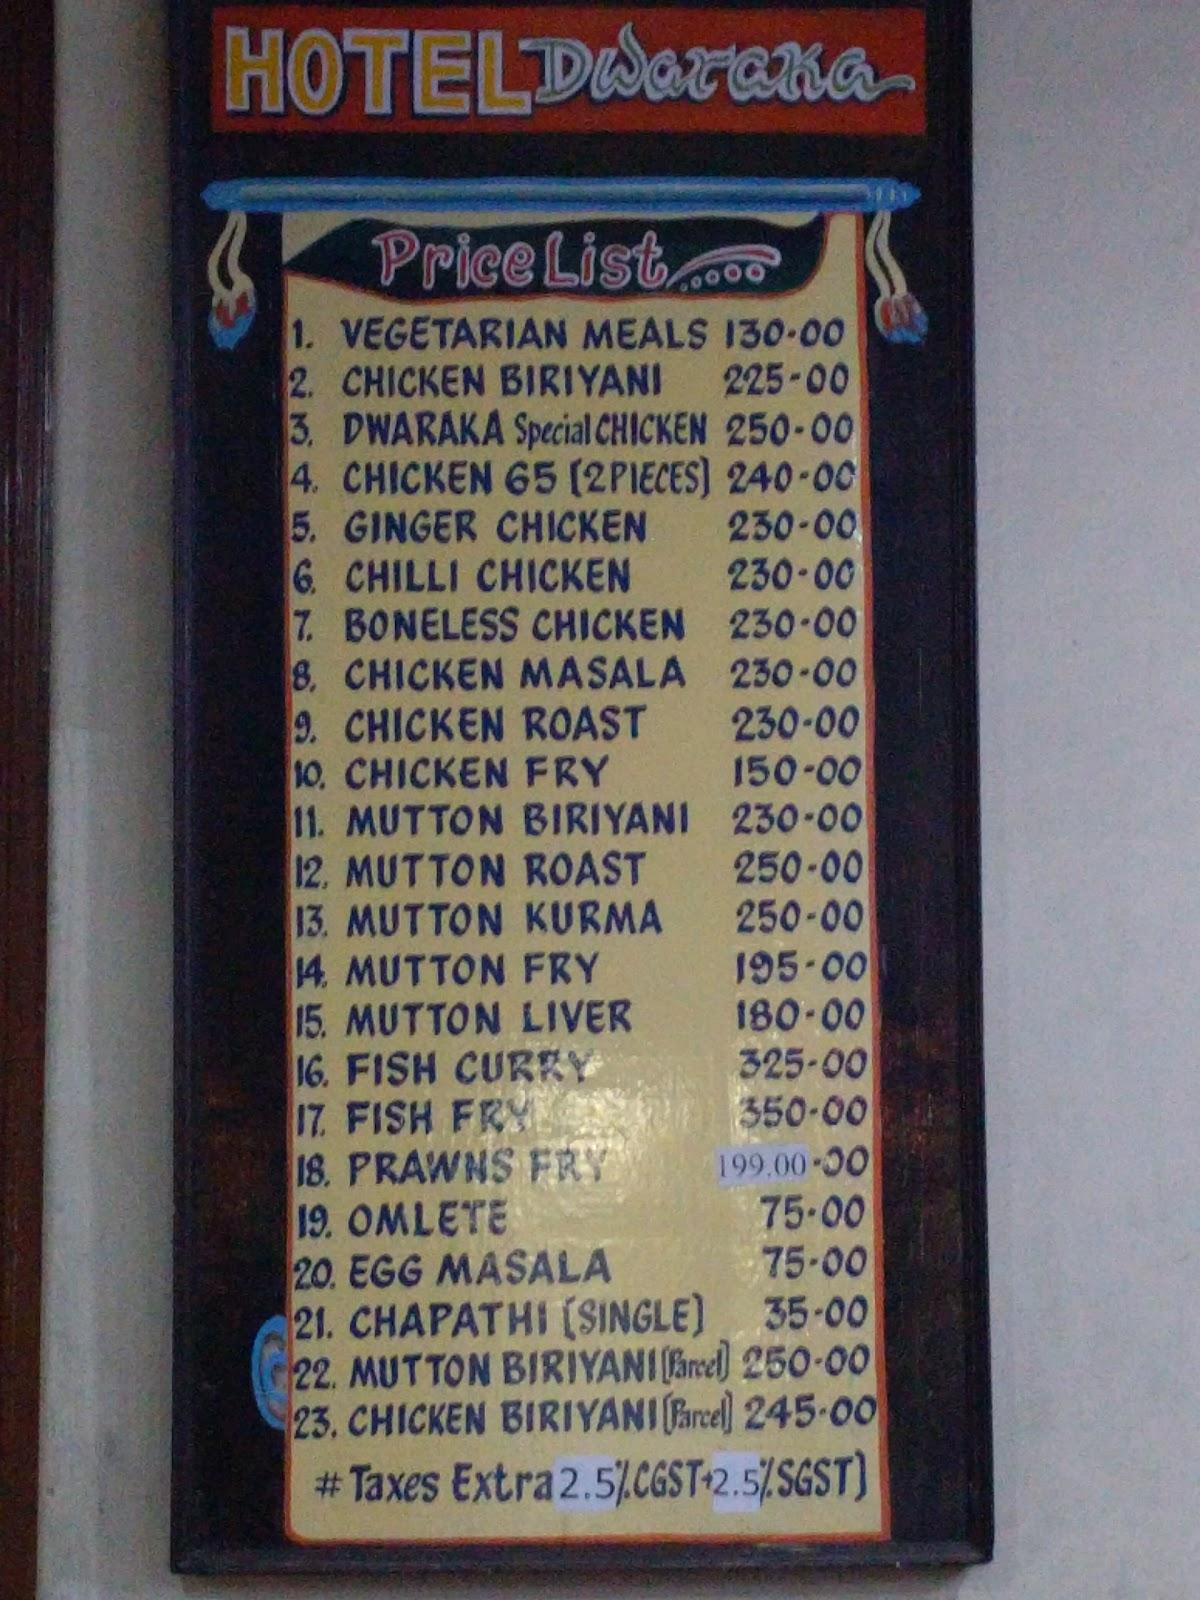 HOTEL Dwaraka
Price List.....
1. VEGETARIAN MEALS 130-00
2. CHICKEN BIRIYANI 225-00
3. DWARAKA Special CHICKEN 250-00
4. CHICKEN 65 [2 PIECES] 240-00
5. GINGER CHICKEN 230-00
6. CHILLI CHICKEN 230-00
7. BONELESS CHICKEN 230-00
8. CHICKEN MASALA 230-00
9. CHICKEN ROAST 230-00
10. CHICKEN FRY 150-00
11. MUTTON BIRIYANI 230-00
12. MUTTON ROAST 250-00
13. MUTTON KURMA 250-00
14. MUTTON FRY 195-00
15. MUTTON LIVER 180-00
16. FISH CURRY 325-00
17. FISH FRY 350-00
18. PRAWNS FRY 199.00-00
19. OMLETE 75-00
20. EGG MASALA 75-00
21. CHAPATHI [SINGLE] 35-00
22. MUTTON BIRIYANI [Parcel] 250-00
23. CHICKEN BIRIYANI [Parcel] 245-00
# Taxes Extra 2.5%CGST+2.5%SGST]